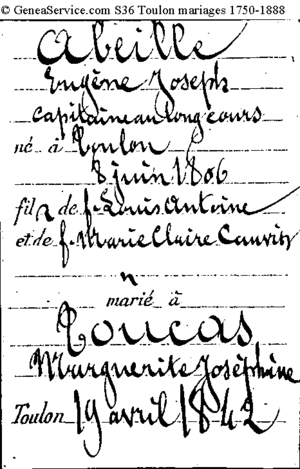 © GeneaService.com S36 Toulon mariages 1750-1888
Abeille
Eugène Joseph
Capitaine au long cours
né à Toulon
8 juin 1806
fils de f. Louis Antoine
et de f. Marie Claire Cauvin
marié à
Toucas
Marguerite Joséphine
Toulon 19 avril 1842